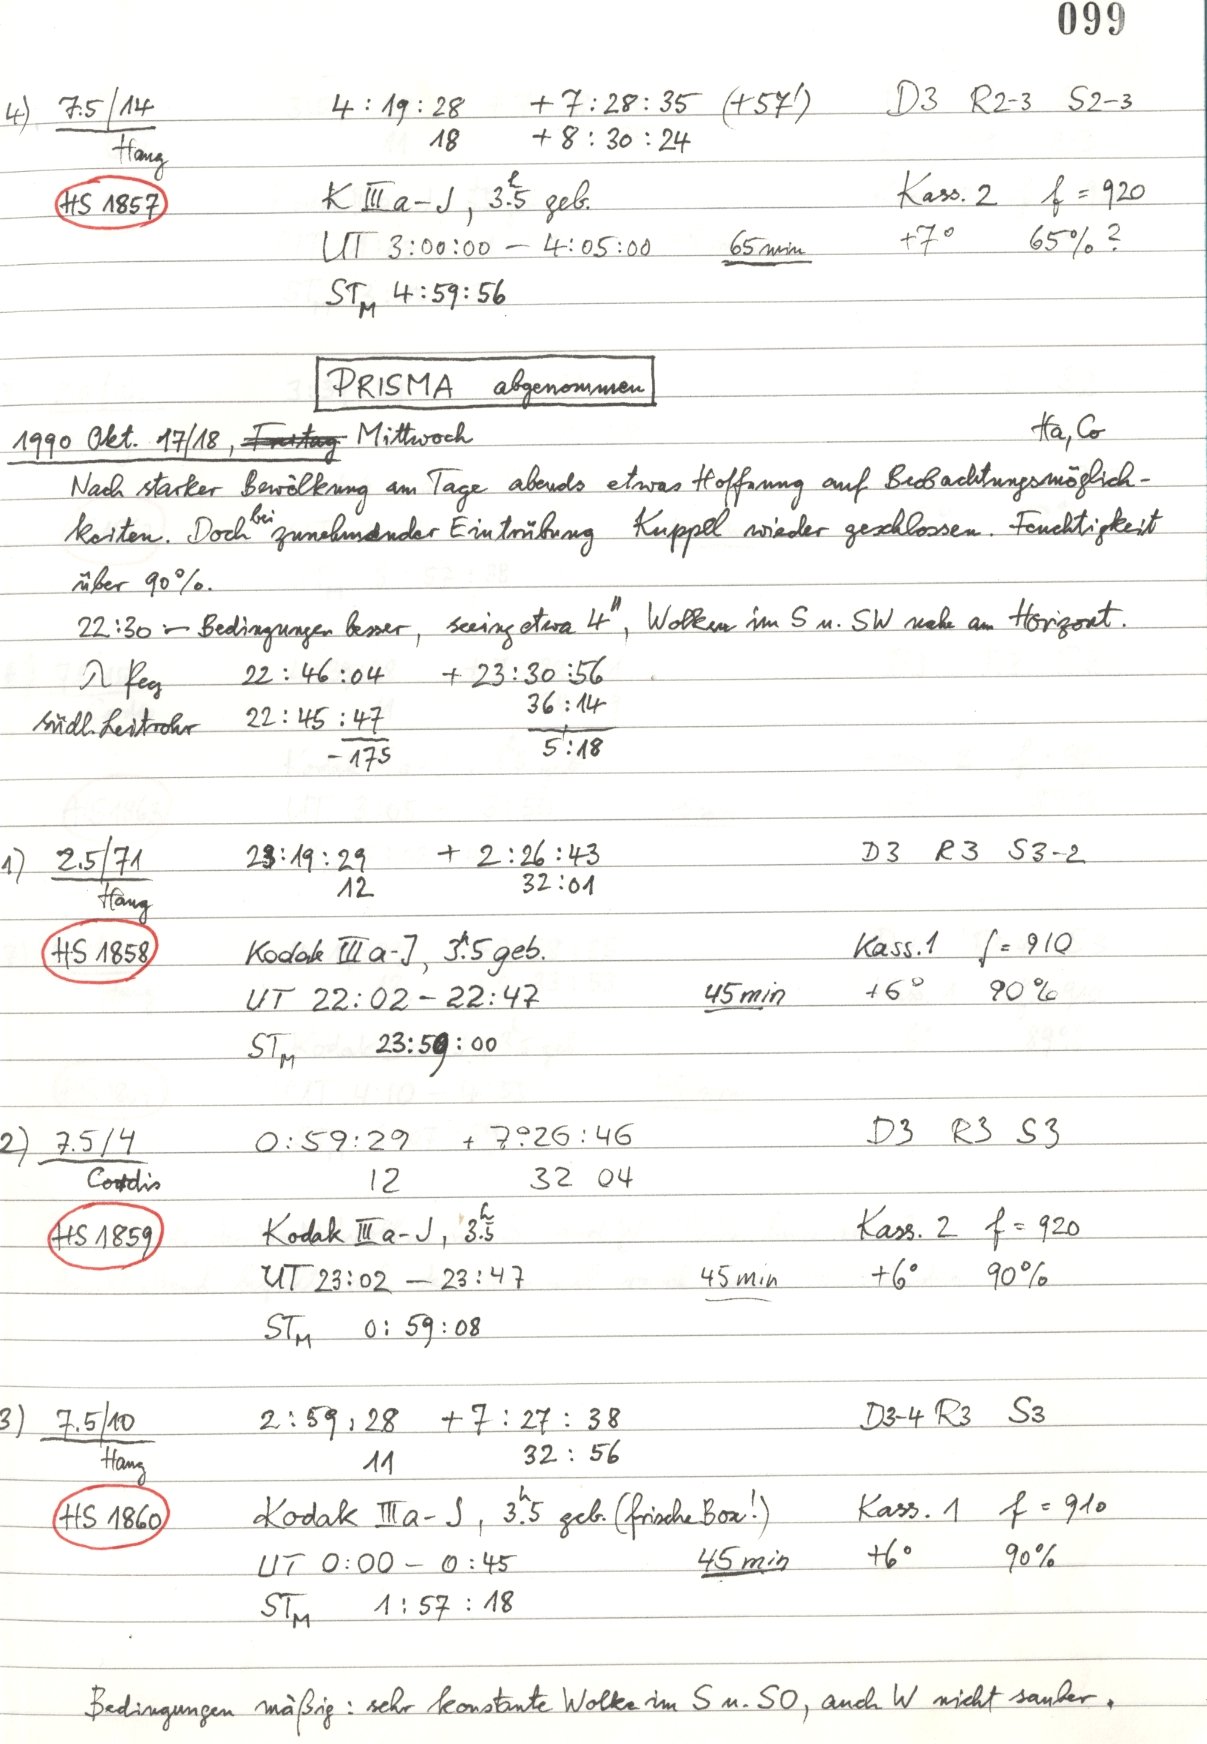 099
4) 7.5/14 4:19:28 +7:28:35 (+57') D3 R2-3 S2-3
Haug 18 +8:30:24
HS 1857 K IIIa-J, 3.5h geb. Kass. 2 f = 920
UT 3:00:00 – 4:05:00 65min +7° 65%?
STM 4:59:56
PRISMA abgenommen
1990 Okt. 17/18, Mittwoch Ha, Co
Nach starker Bewölkung am Tage abends etwas Hoffnung auf Beobachtungsmöglich-
keiten. Doch bei zunehmender Eintrübung Kuppel wieder geschlossen. Feuchtigkeit
über 90%.
22:30 – Bedingungen besser, seeing etwa 4", Wolken im S u. SW nahe am Horizont.
λ Peg 22:46:04 +23:30:56
südl. Leitrohr 22:45:47 36:14
-17s 5':18
1) 2.5/71 23:19:29 + 2:26:43 D3 R3 S3-2
Haug 12 32:01
HS 1858 Kodak IIIa-J, 3h.5 geb. Kass. 1 f = 910
UT 22:02 – 22:47 45min +6° 90%
STM 23:59:00
2) 7.5/4 0:59:29 + 7°26:46 D3 R3 S3
Cordis 12 32 04
HS 1859 Kodak IIIa-J, 3.5h Kass. 2 f = 920
UT 23:02 – 23:47 45min +6° 90%
STM 0:59:08
3) 7.5/10 2:59:28 +7:27:38 D3-4 R3 S3
Haug 11 32:56
HS 1860 Kodak IIIa-J, 3.5h geb. (frische Box!) Kass. 1 f = 910
UT 0:00 – 0:45 45min +6° 90%
STM 1:57:18
Bedingungen mäßig: sehr konstante Wolke im S u. SO, auch W nicht sauber.